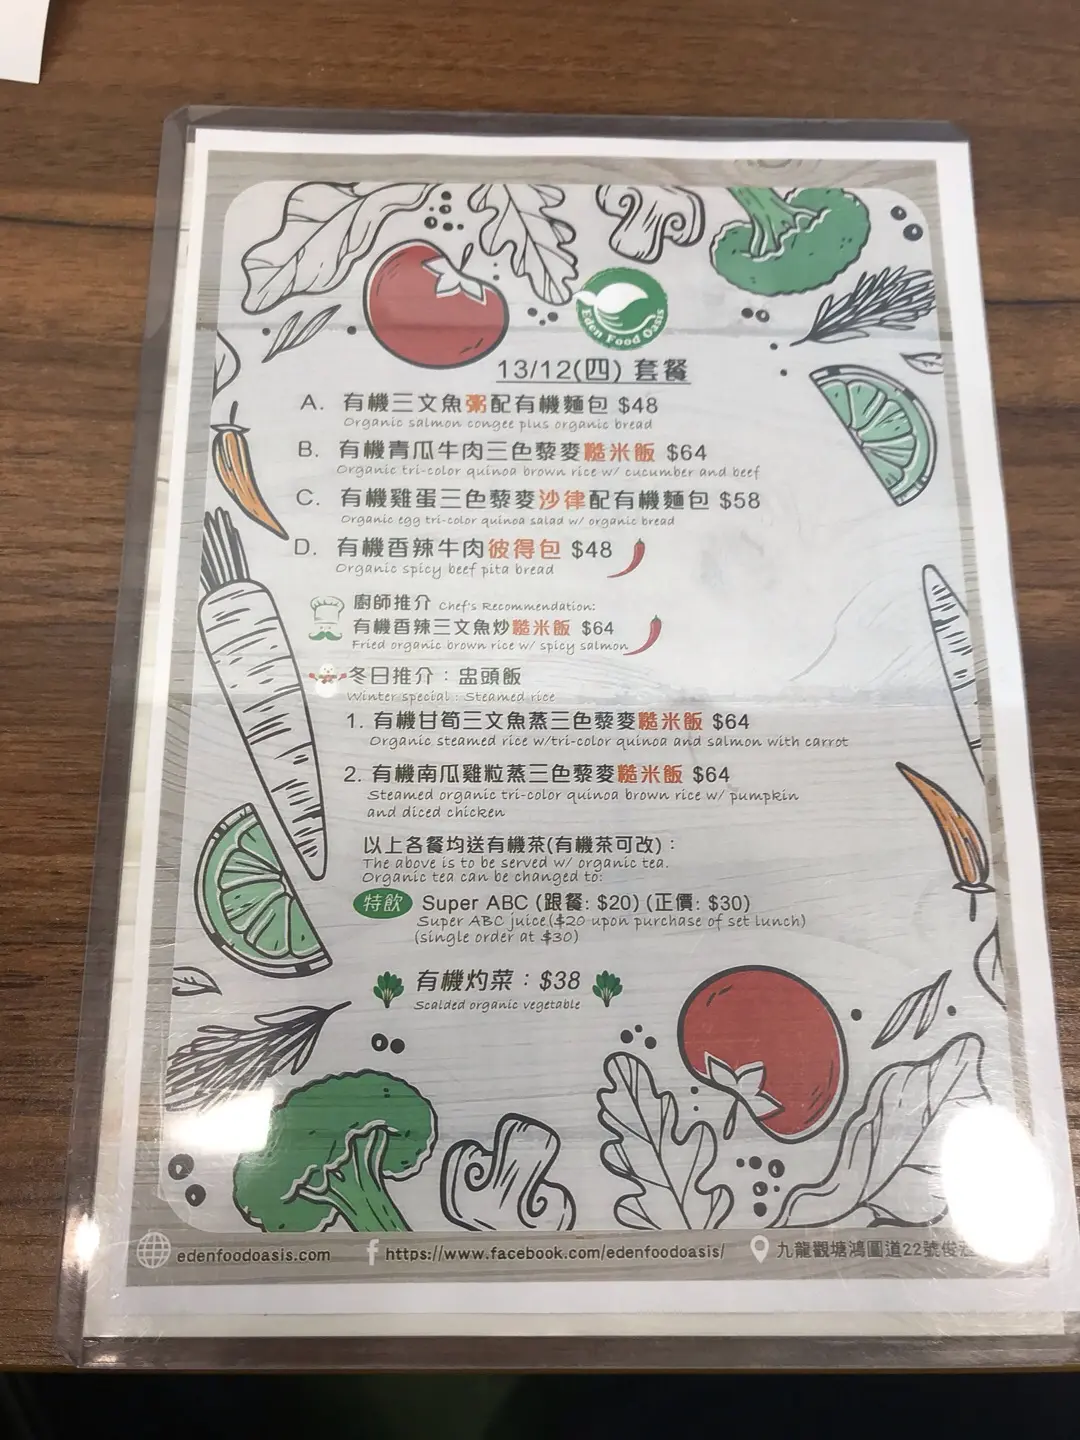 Eden Food Oasis
13/12(四) 套餐
A. 有機三文魚粥配有機麵包 $48
Organic salmon congee plus organic bread
B. 有機青瓜牛肉三色藜麥糙米飯 $64
Organic tri-color quinoa brown rice w/ cucumber and beef
C. 有機雞蛋三色藜麥沙律配有機麵包 $58
Organic egg tri-color quinoa salad w/ organic bread
D. 有機香辣牛肉彼得包 $48
Organic spicy beef pita bread
廚師推介 Chef's Recommendation:
有機香辣三文魚炒糙米飯 $64
Fried organic brown rice w/ spicy salmon
冬日推介：盅頭飯
Winter special : Steamed rice
1. 有機甘筍三文魚蒸三色藜麥糙米飯 $64
Organic steamed rice w/tri-color quinoa and salmon with carrot
2. 有機南瓜雞粒蒸三色藜麥糙米飯 $64
Steamed organic tri-color quinoa brown rice w/ pumpkin
and diced chicken
以上各餐均送有機茶(有機茶可改)：
The above is to be served w/ organic tea.
Organic tea can be changed to:
特飲 Super ABC (跟餐: $20) (正價: $30)
Super ABC juice($20 upon purchase of set lunch)
(single order at $30)
有機灼菜：$38
Scalded organic vegetable
edenfoodoasis.com https://www.facebook.com/edenfoodoasis/ 九龍觀塘鴻圖道22號俊